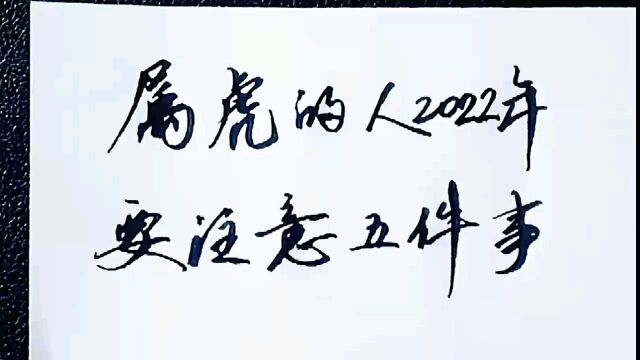 属虎的人2022年
要注意五件事